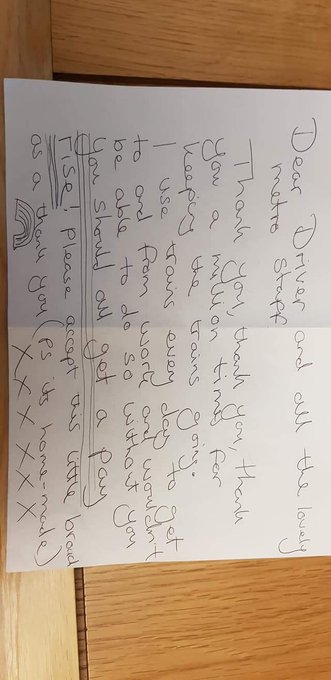 Dear Driver and all the lovely
metro staff
Thank you, thank you, thank
you a million times for
keeping the trains going.
I use trains every day to get
to and from work and wouldn't
be able to do so without you
you should all get a pay
rise! Please accept this little bread
as a thank you (Ps its home-made)
X X X X X X